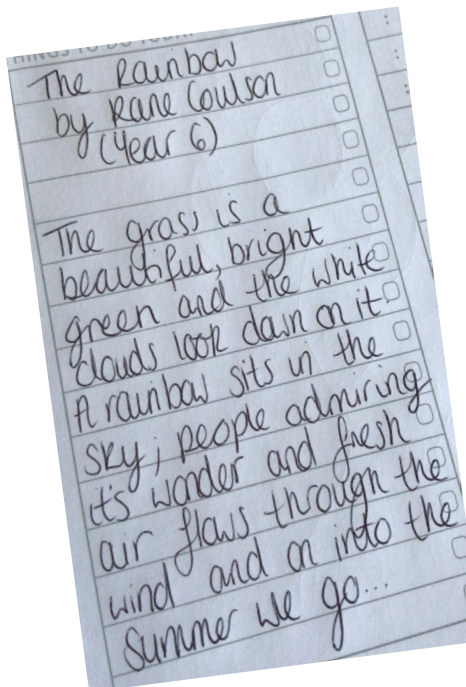 THINGS TO DO TODAY...
The Rainbow
by Rane Coulson
(Year 6)
The grass is a
beautiful, bright
green and the white
clouds look down on it
A rainbow sits in the
sky; people admiring
it's wonder and fresh
air flows through the
wind and on into the
Summer we go...